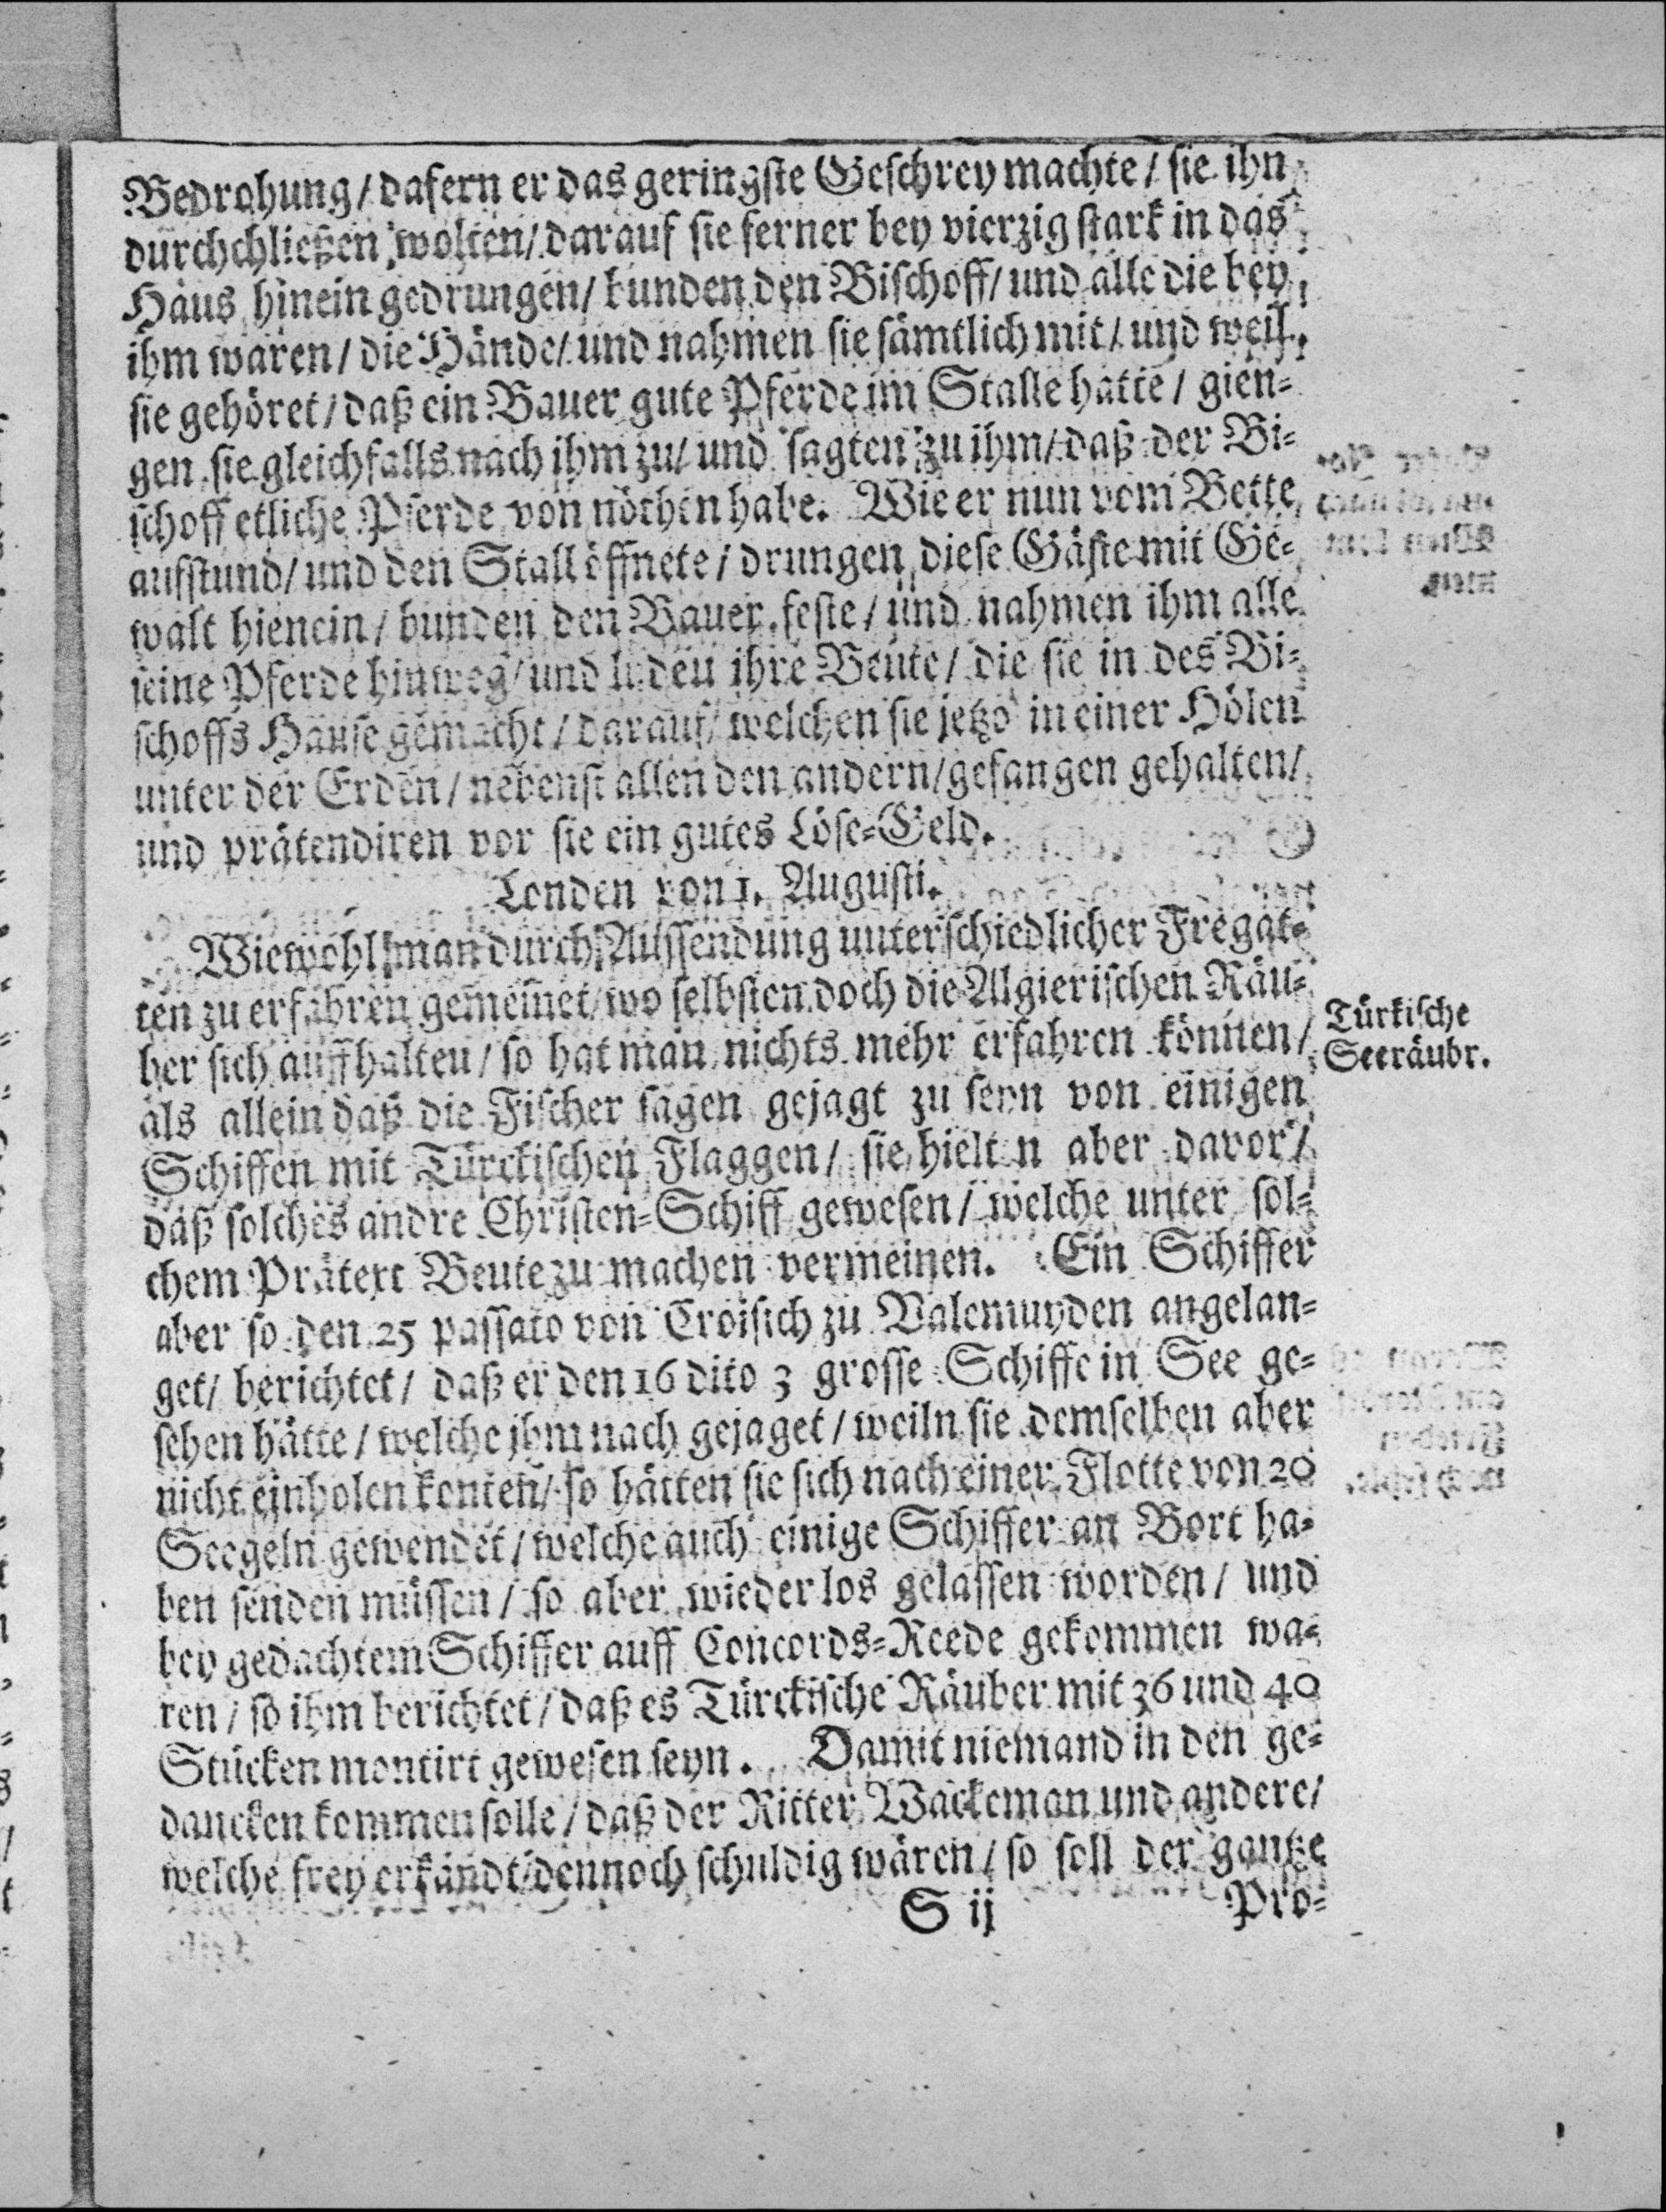 Bedrohung / dafern er das geringste Geschrey machte / sie ihn
durchchließen wolten / darauf sie ferner bey vierzig stark in das
Haus hinein gedrungen / kunden den Bischoff / und alle die bey
ihm waren / die Hände / und nahmen sie sämtlich mit / und weil
sie gehöret / daß ein Bauer gute Pferde im Stalle hatte / gien=
gen sie gleichfalls nach ihm zu / und sagten zu ihm / daß der Bi=
schoff etliche Pferde von nöthen habe. Wie er nun vom Bette
aufstund / und den Stall öffnete / drungen diese Gäste mit Ge=
walt hienein / bunden den Bauer feste / und nahmen ihm alle
seine Pferde hinweg / und luden ihre Beute / die sie in des Bi=
schoffs Hause gemacht / darauf / welchen sie jetzo in einer Hölen
unter der Erden / nebenst allen den andern / gefangen gehalten /
und prätendiren vor sie ein gutes Löse=Geld.
Londen von 1. Augusti.
Wiewohl man durch Aussendung unterschiedlicher Fregat=
ten zu erfahren gemeinet / wo selbsten doch die Algierischen Räu=
ber sich auffhalten / so hat man nichts mehr erfahren können /
Türkische
Seeräubr.
als allein daß die Fischer sagen gejagt zu seyn von einigen
Schiffen mit Türckischen Flaggen / sie hielt n aber davor /
daß solches andre Christen=Schiff gewesen / welche unter sol=
chem Prätext Beute zu machen vermeinen. Ein Schiffer
aber so den 25 passato von Croisich zu Valemuyden angelan=
get / berichtet / daß er den 16 dito 3 grosse Schiffe in See ge=
sehen hätte / welche ihm nach gejaget / weiln sie demselben aber
nicht einholen konten / so hätten sie sich nach einer Flotte von 20
Seegeln gewendet / welche auch einige Schiffer an Bort ha=
ben senden müssen / so aber wieder los gelassen worden / und
bey gedachtem Schiffer auff Concords=Reede gekommen wa=
ren / so ihm berichtet / daß es Türckische Räuber mit 36 und 40
Stücken montirt gewesen seyn. Damit niemand in den ge=
dancken kommen solle / daß der Ritter Wackeman und andere /
welche frey erkandt / dennoch schuldig wären / so soll der gantze
S ij Pro=